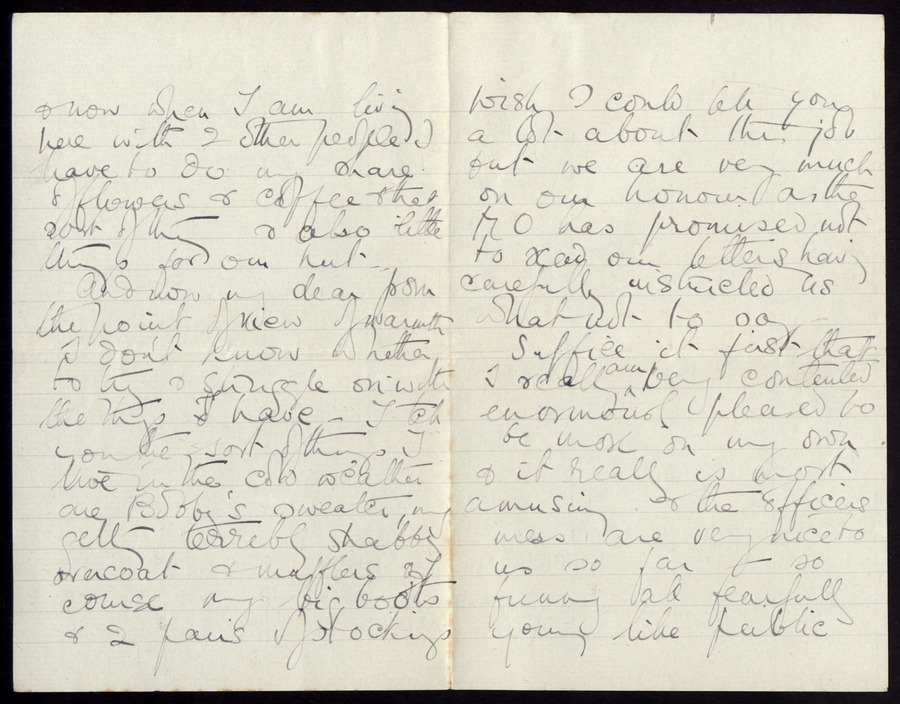 & now when I am living
here with 2 other people I
have to do my share
of flowers & coffee & that
sort of thing & also little
things for our hut –
And now my dear from
the point of view of warmth
I don't know whether
to try & struggle on with
the things I have – I tell
you the sort of things I
live in the cold weather
are Bobby's sweater, my
getting terribly shabby
overcoat & mufflers & of
course my big boots
& 2 pairs of stockings
wish I could tell you
a lot about the job
but we are very much
on our honour as the
MO has promised not
to read our letters having
carefully instructed us
what not to say
Suffice it first that
I really am very contented
enormously pleased to
be more on my own
& it really is most
amusing & the officers
mess are very nice to
us so far & so
funny all fearfully
young like public